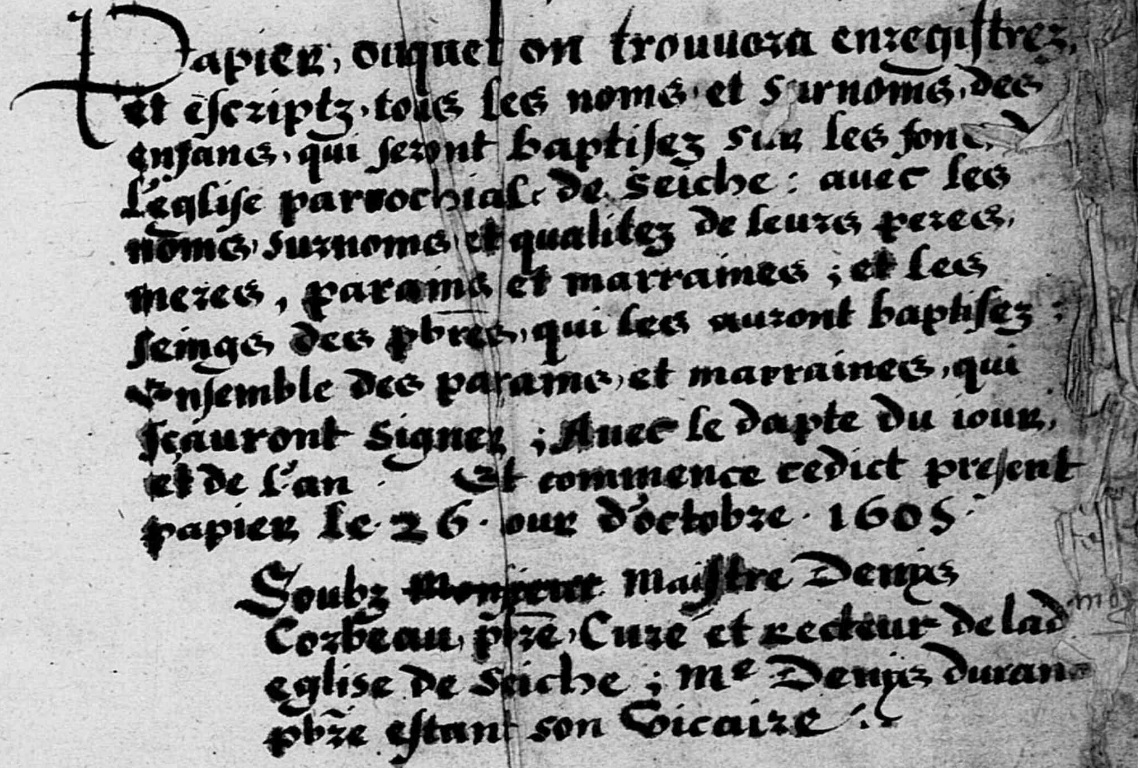 Papier, ouquel on trouvera enregistrez,
et escriptz, tous les noms, et surnoms, des
enfans, qui seront baptisez sur les fons,
l'église parrochiale de Seiche: avec les
noms, surnoms et qualitez de leurs peres,
meres, parains et marraines; et les
seings des pbres, qui les auront baptisez:
Ensemble des parains, et marraines, qui
sçauront signer; Avec le dapte du iour,
et de l'an. Et commence cedict present
papier le 26. iour d'octobre. 1605.
Soubz maistre Denys
Corbeau, pbre, Curé et recteur de lad
eglise de Seiche; Me Denys durand
pbre estant son Vicaire.